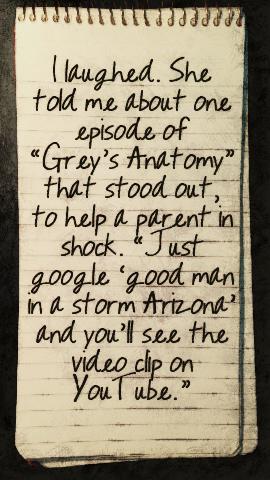 I laughed. She
told me about one
episode of
“Grey’s Anatomy”
that stood out,
to help a parent in
shock. “Just
google ‘good man
in a storm Arizona’
and you’ll see the
video clip on
YouTube.”